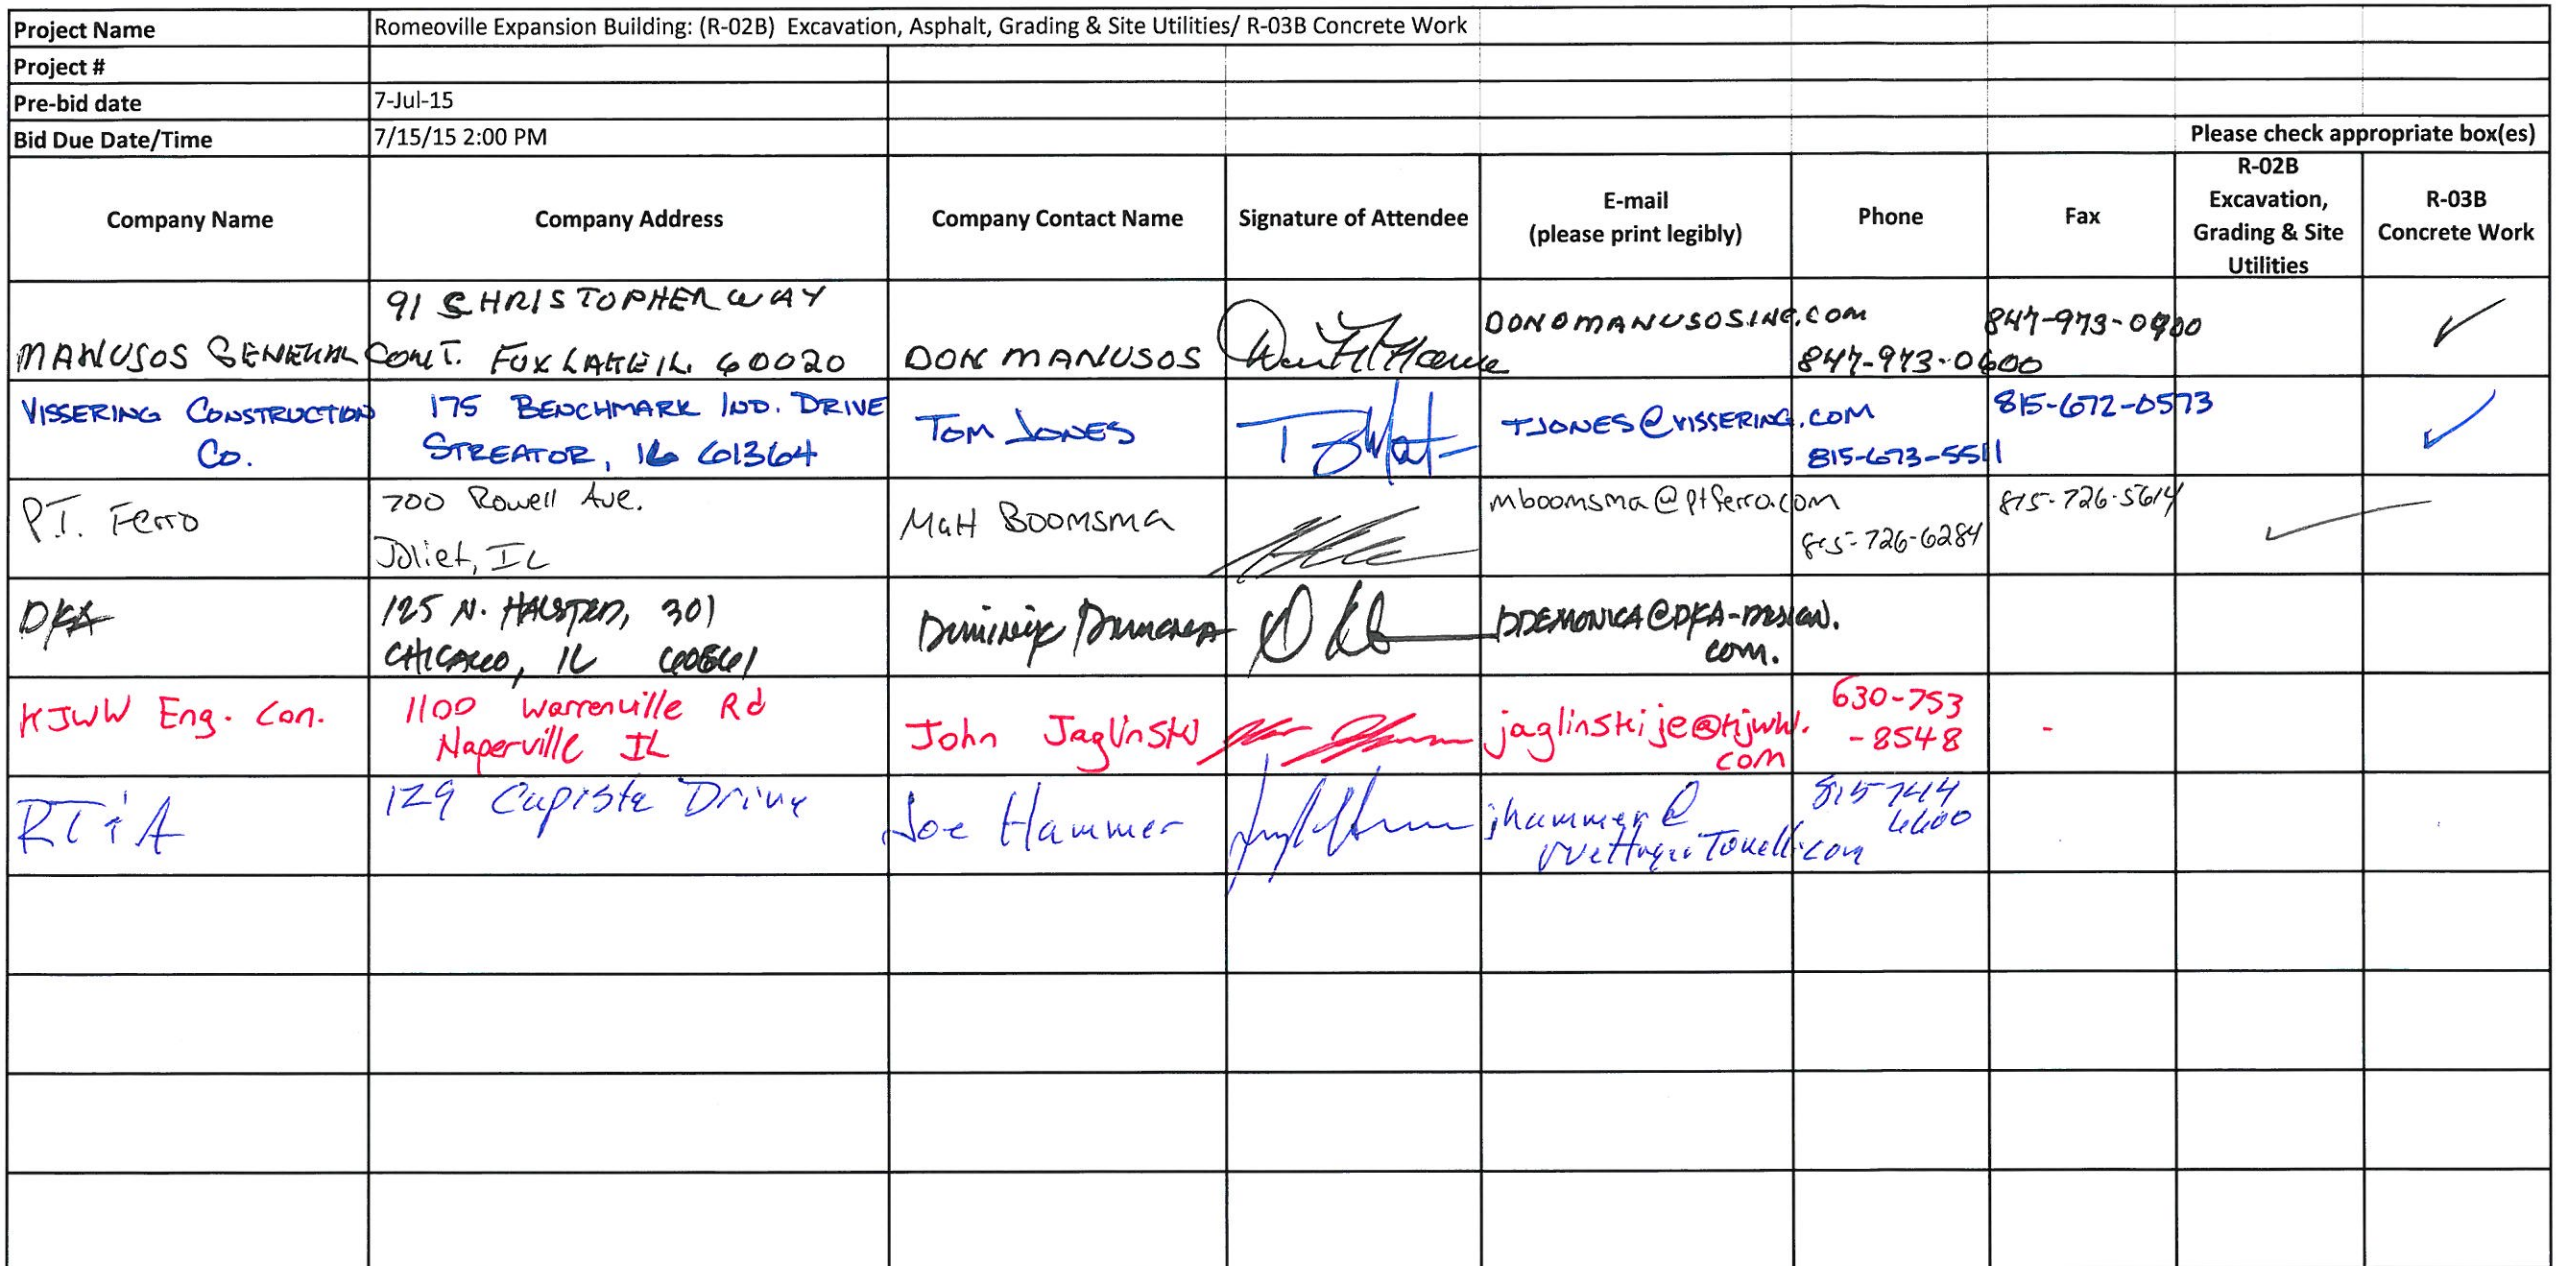 Project Name Romeoville Expansion Building: (R-02B) Excavation, Asphalt, Grading & Site Utilities/ R-03B Concrete Work
Project #
Pre-bid date 7-Jul-15
Bid Due Date/Time 7/15/15 2:00 PM Please check appropriate box(es)
Company Name
Company Address
Company Contact Name
Signature of Attendee
E-mail
(please print legibly)
Phone
Fax
R-02B
Excavation,
Grading & Site
Utilities
R-03B
Concrete Work
91 CHRISTOPHER WAY
MANUSOS GENERAL CONT. FOX LAKE IL. 60020
DON MANUSOS
DON@MANUSOSINC.COM
847-973-0600
847-973-0900
✓
VISSERING CONSTRUCTION
Co.
175 BENCHMARK IND. DRIVE
STREATOR, IL 61364
TOM JONES
TJONES@VISSERING.COM
815-673-5511
815-672-0573
✓
P.T. Ferro
700 Rowell Ave.
Joliet, IL
Matt BOOMSMA
mboomsma@ptferro.com
815-726-6284
815-726-5614
✓
DKA
125 N. HALSTED, 301
CHICAGO, IL 60661
DDEMONICA@DKA-DESIGN.
com.
KJWW Eng. Con.
1100 Warrenville Rd
Naperville IL
John Jaglinski
jaglinskije@kjww.
com
630-753
-8548
-
129 Capista Drive
Joe Hammer
jhammer@
815 744
6600